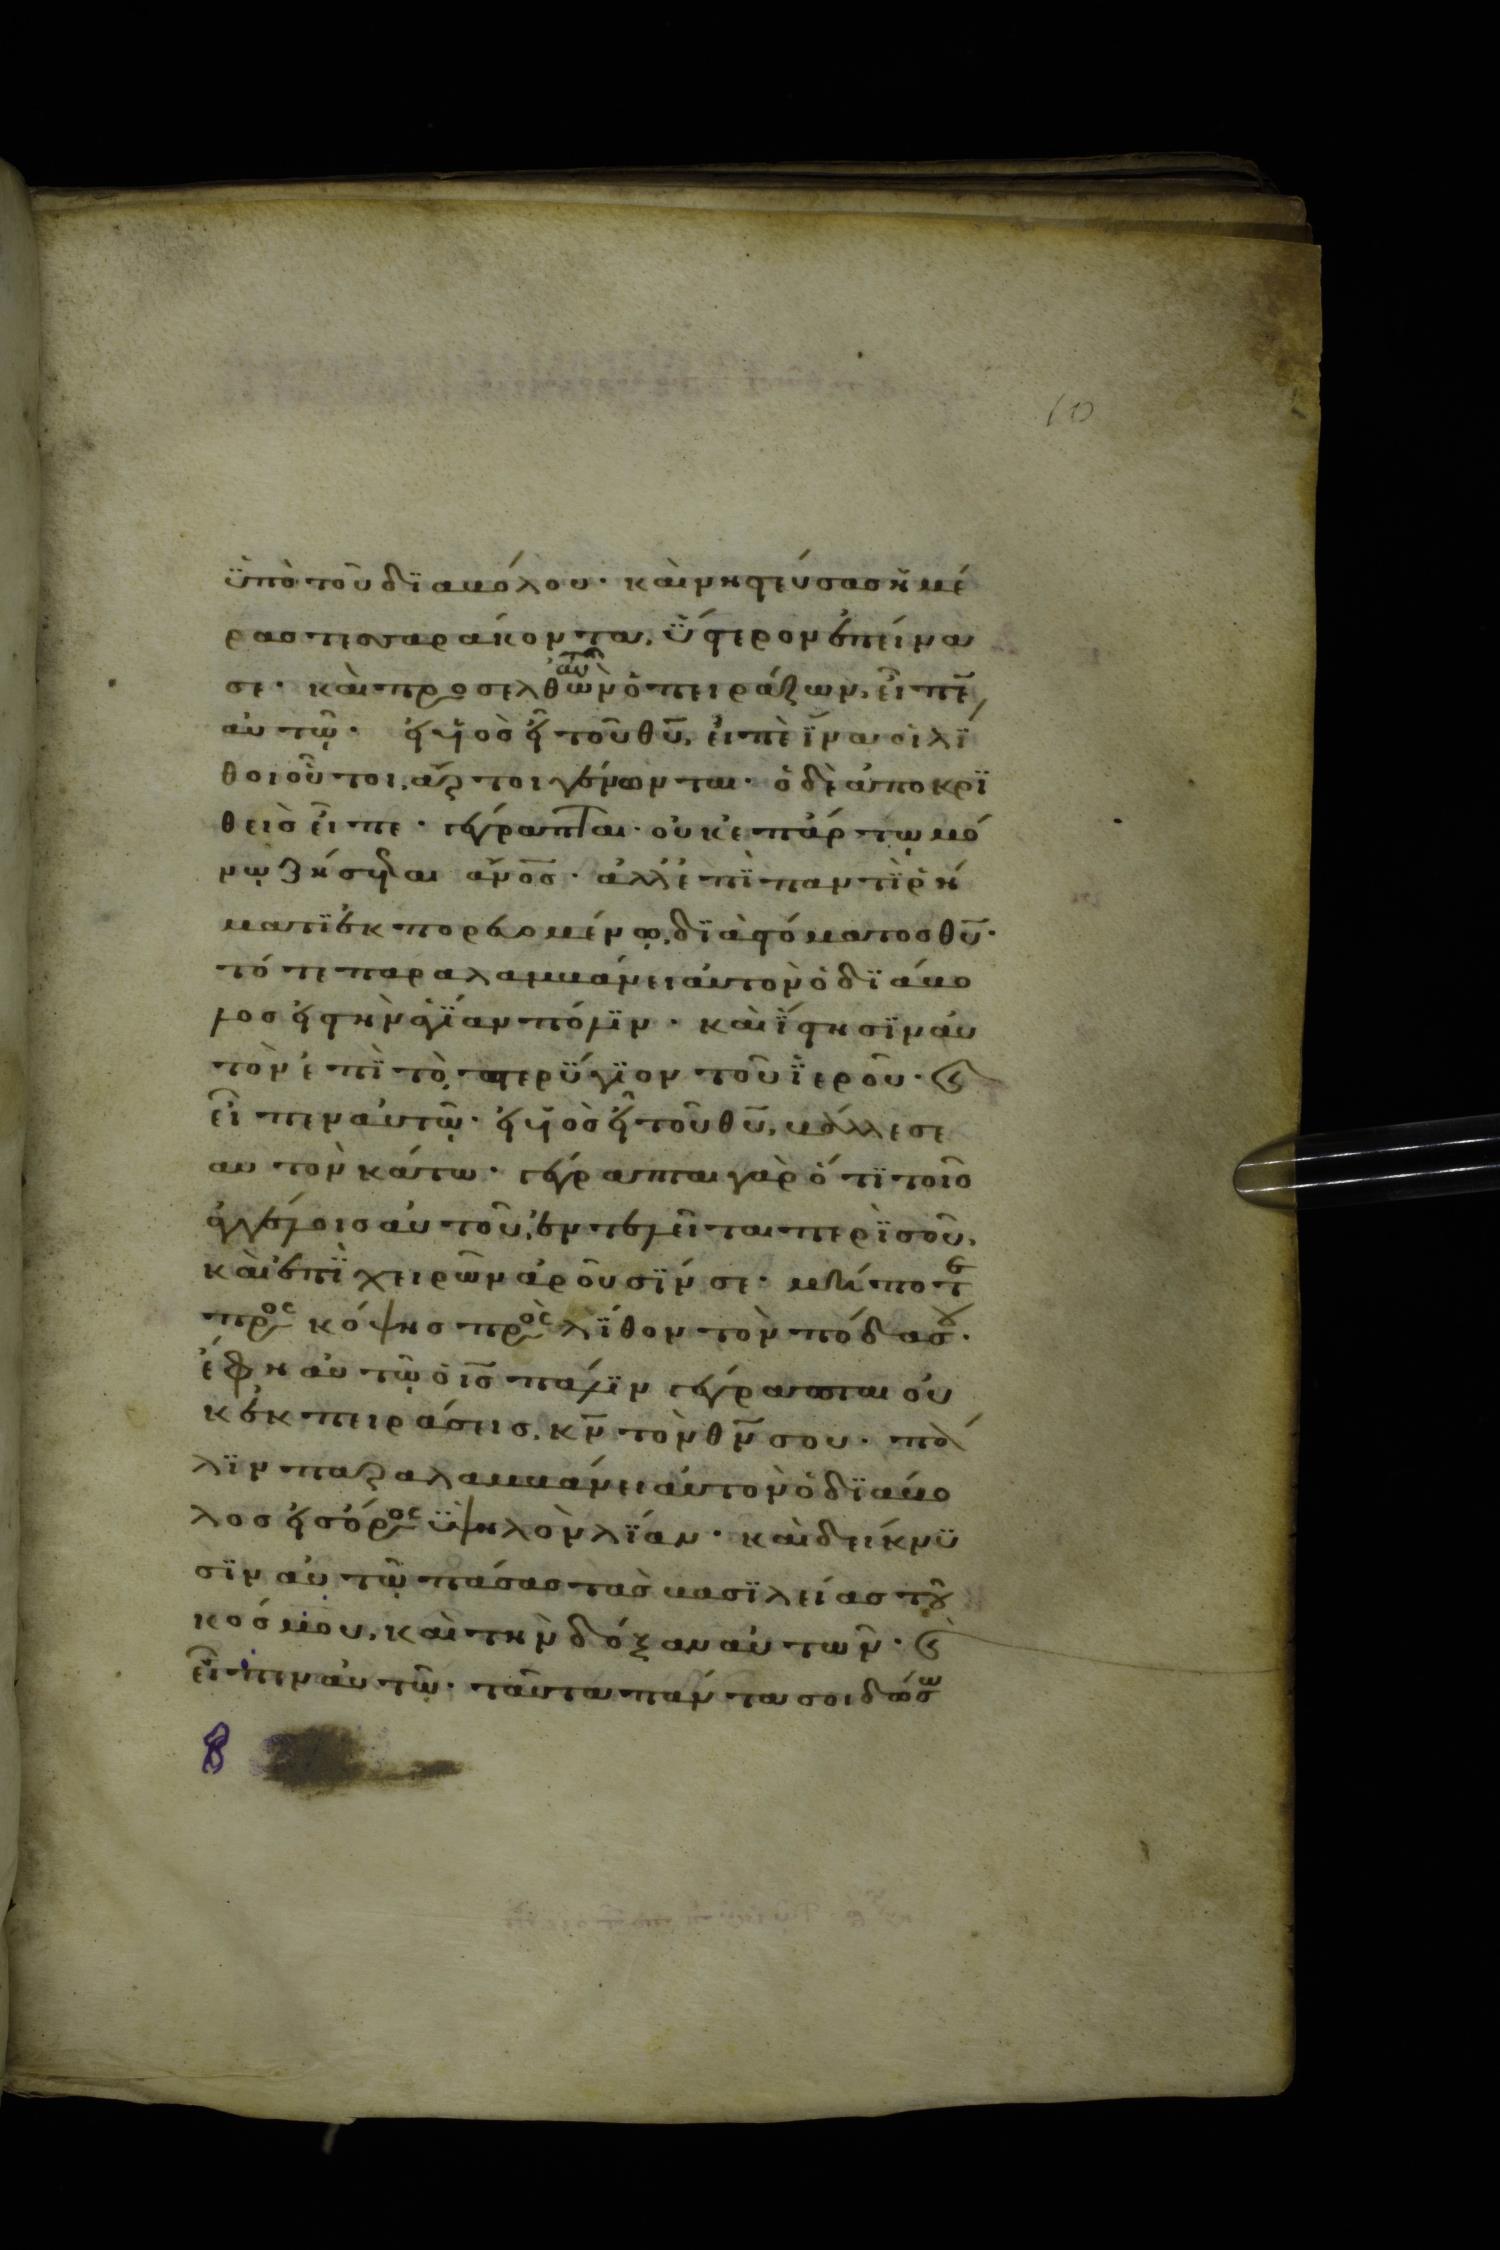 10
ὑπὸ τοῦ διαβόλου· καὶ νηστεύσας ἡμέ
ρας τεσσαράκοντα, ὕστερον ἐπείνα
σε· καὶ προσελθὼν αὐτῶ ὁ πειράζων, εἶπε
αὐτῶ· εἰ υἱὸς εἶ τοῦ θῦ, εἰπὲ ἵνα οἱ λί
θοι οὗτοι, ἄρτοι γένωνται· ὁ δὲ ἀποκρι
θεὶς εἶπε· γέγραπται· οὐκ ἐπ' ἄρτω μό
νω ζήσεται ἄνος· ἀλλ' ἐπὶ παντὶ ῥή
ματι ἐκπορευομένω, διὰ στόματος θῦ·
τότε παραλαμβάνει αὐτὸν ὁ διάβο
λος εἰς τὴν ἁγίαν πόλιν· καὶ ἵστησιν αὐ
τὸν ἐπὶ τὸ πτερύγιον τοῦ ἱεροῦ· καὶ
εἶπεν αὐτῶ· εἰ υἱὸς εἶ τοῦ θῦ, βάλλε σε
αυτὸν κάτω· γέγραπται γὰρ ὅτι τοῖς
ἀγγέλοις αὐτοῦ, ἐντελεῖται περὶ σοῦ,
καὶ ἐπὶ χειρῶν ἀροῦσίν σε· μήποτε
προσκόψης πρὸς λίθον τὸν πόδα σου·
ἔφη αὐτῶ ὁ ις πάλιν γέγραπται οὐ
κ ἐκπειράσεις, κν τὸν θν σου· πά
λιν παραλαμβάνει αὐτὸν ὁ διάβο
λος εἰς ὄρος ὑψηλὸν λίαν· καὶ δείκνυ
σιν αὐτῶ πάσας τὰς βασιλείας τοῦ
κόσμου, καὶ τὴν δόξαν αὐτῶν· καὶ
εἶπεν αὐτῶ· ταῦτα πάντα σοι δώσω
8